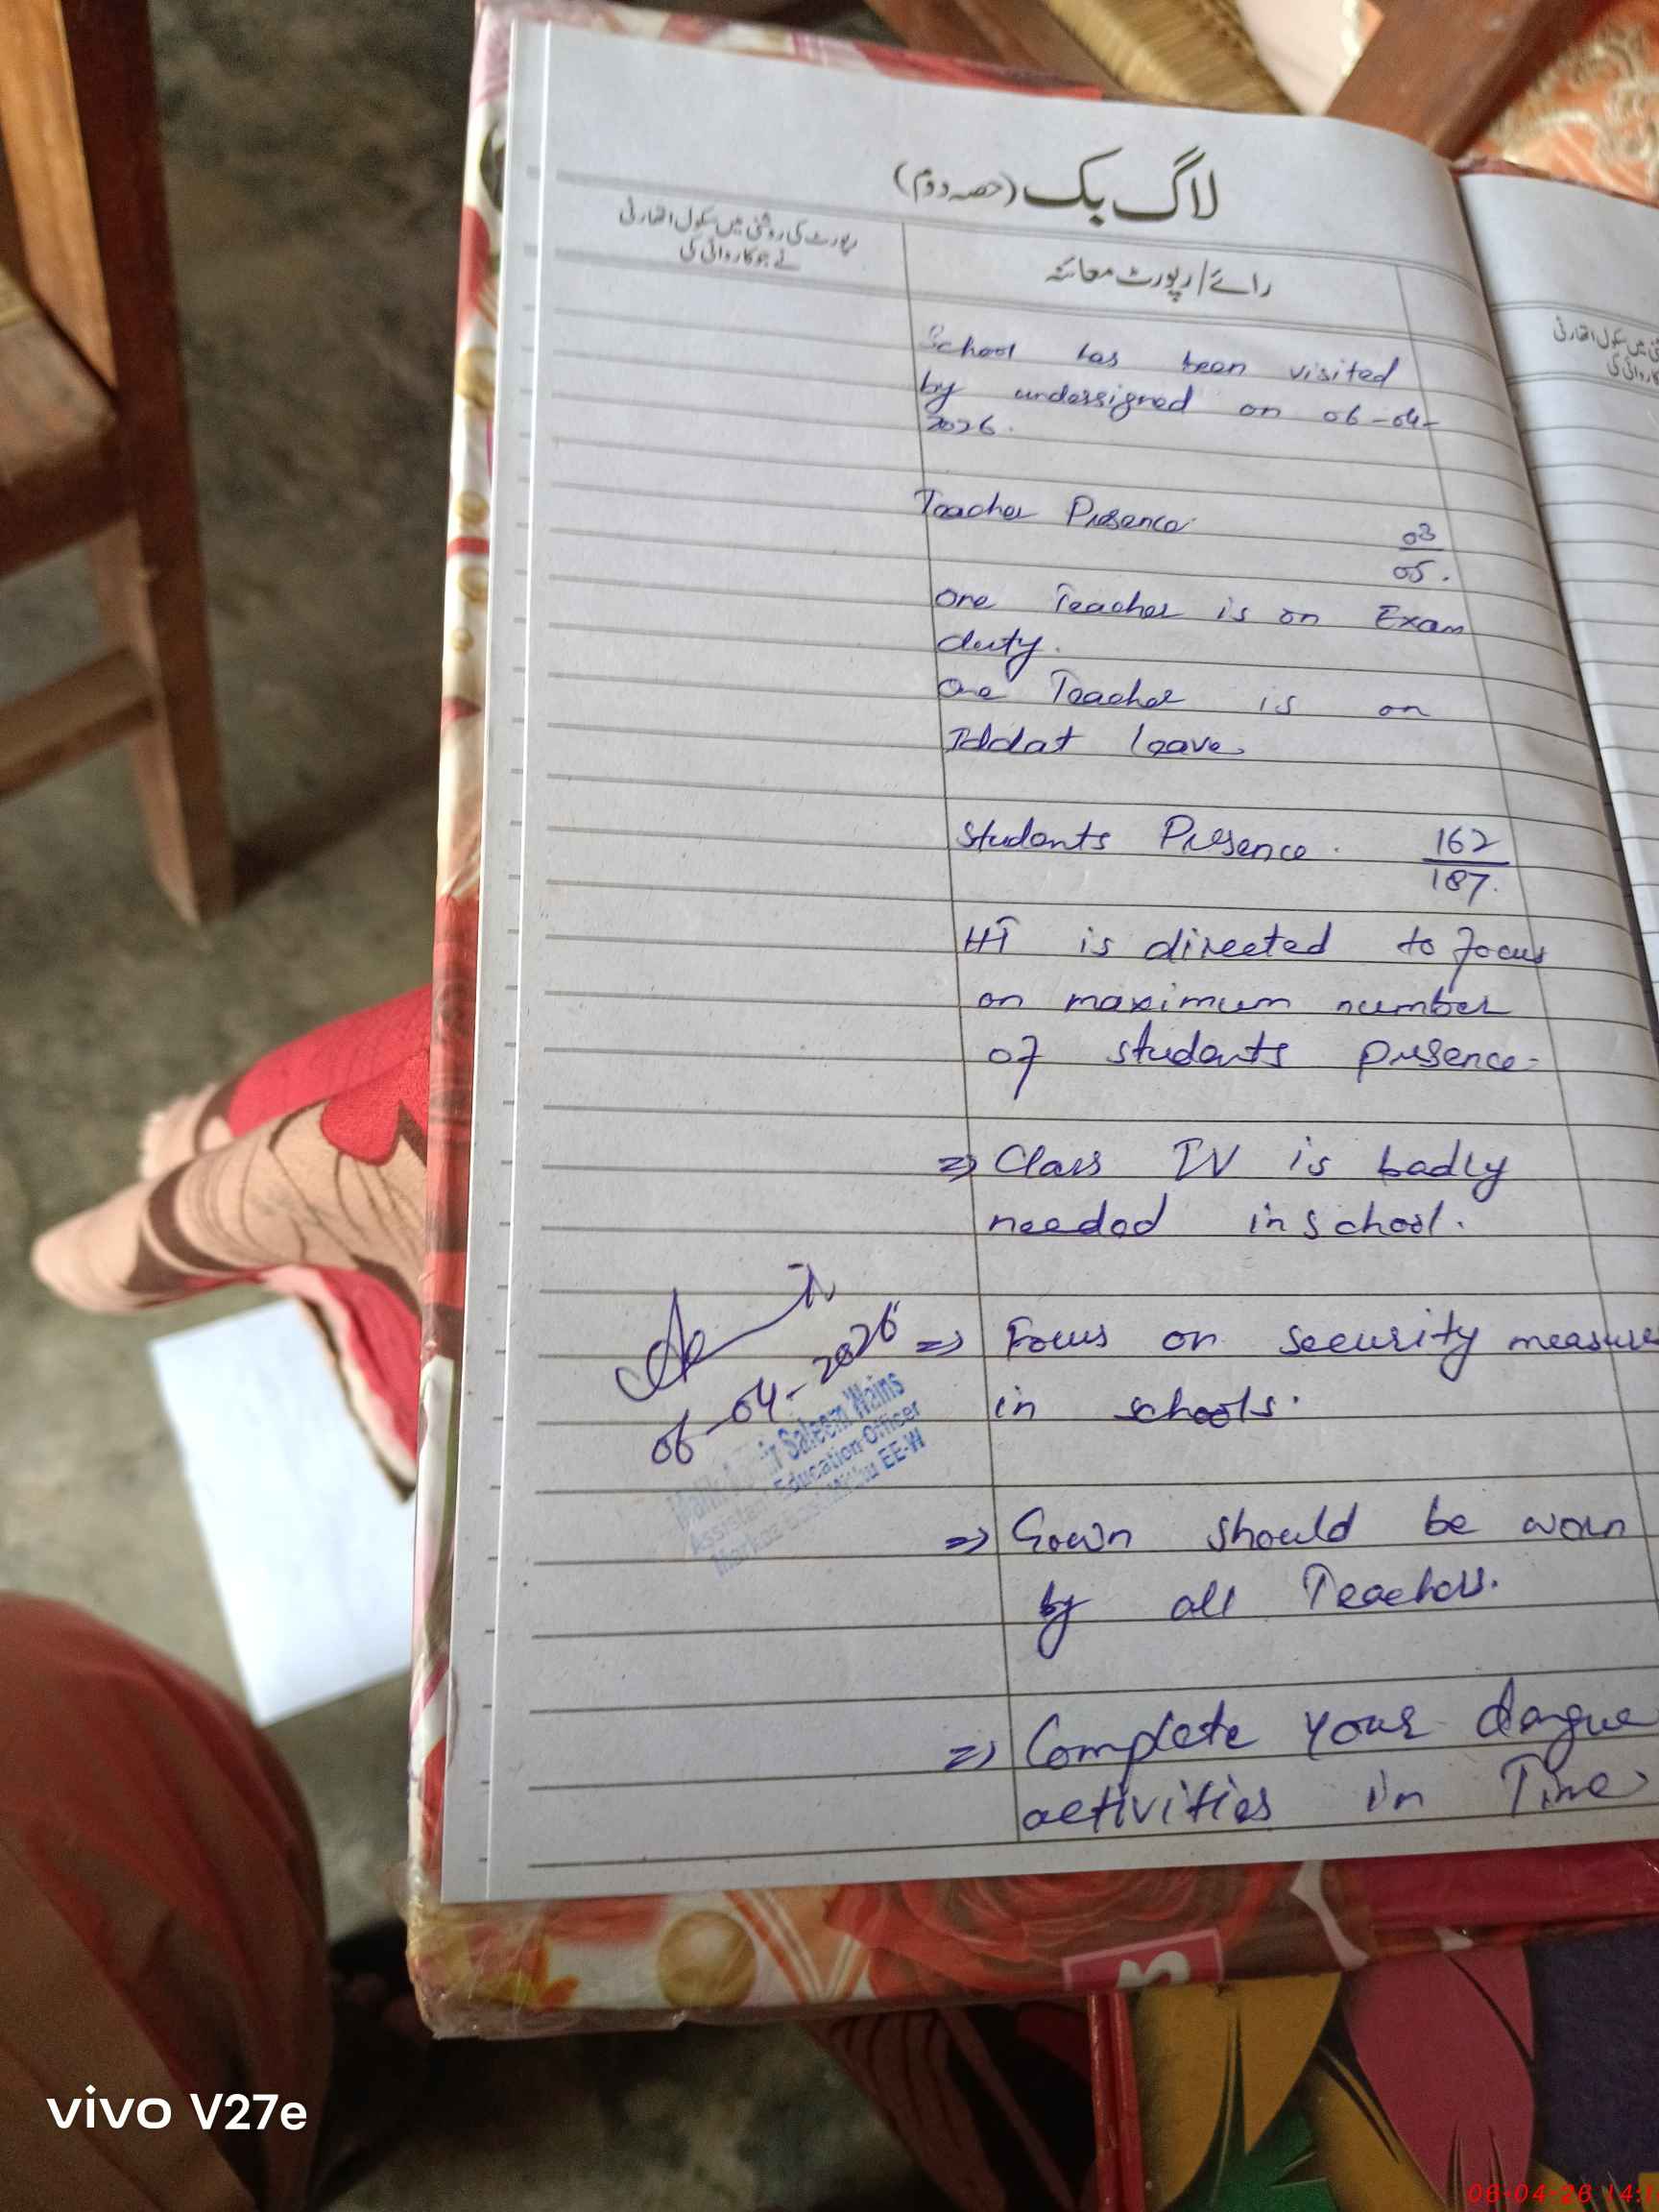 لاگ بک (حصہ دوم)
رائے/رپورٹ معائنہ
رپورٹ کی روشنی میں سکول اتھارٹی
نے جو کاروائی کی
School has been visited
by undersigned on 06-04-
2026.
Teacher Presence 03
05.
one Teacher is on Exam
duty.
One Teacher is on
Iddat leave.
Students Presence. 162
187.
HT is directed to focus
on maximum number
of students presence-
=> Class IV is badly
needed in school.
=> Focus on security measure
in schools.
=> Gown should be worn
by all Teachers.
=> Complete your dengue
activities in Time
06-04-2026
Saleem Wains
Assistant Education Officer
Markaz EE-W
vivo V27e
06-04-26 14:1